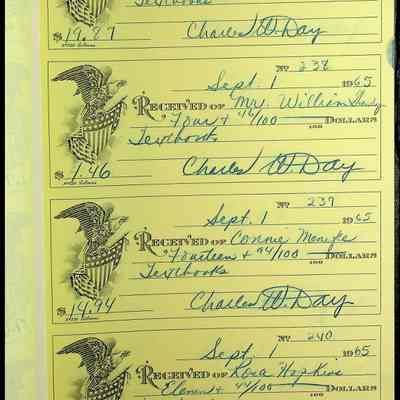 Textbooks
$19.87 Charles W. Day
No 238
Sept. 1 1965
RECEIVED OF Mr. William
Four + 46/100 DOLLARS
100
Textbooks
$4.46 Charles W. Day
No 239
Sept. 1 1965
RECEIVED OF Connie
Fourteen + 94/100 DOLLARS
100
Textbooks
$14.94 Charles W. Day
No 240
Sept. 1 1965
RECEIVED OF Rosa Hopkins
Eleven + 44/100 DOLLARS
100